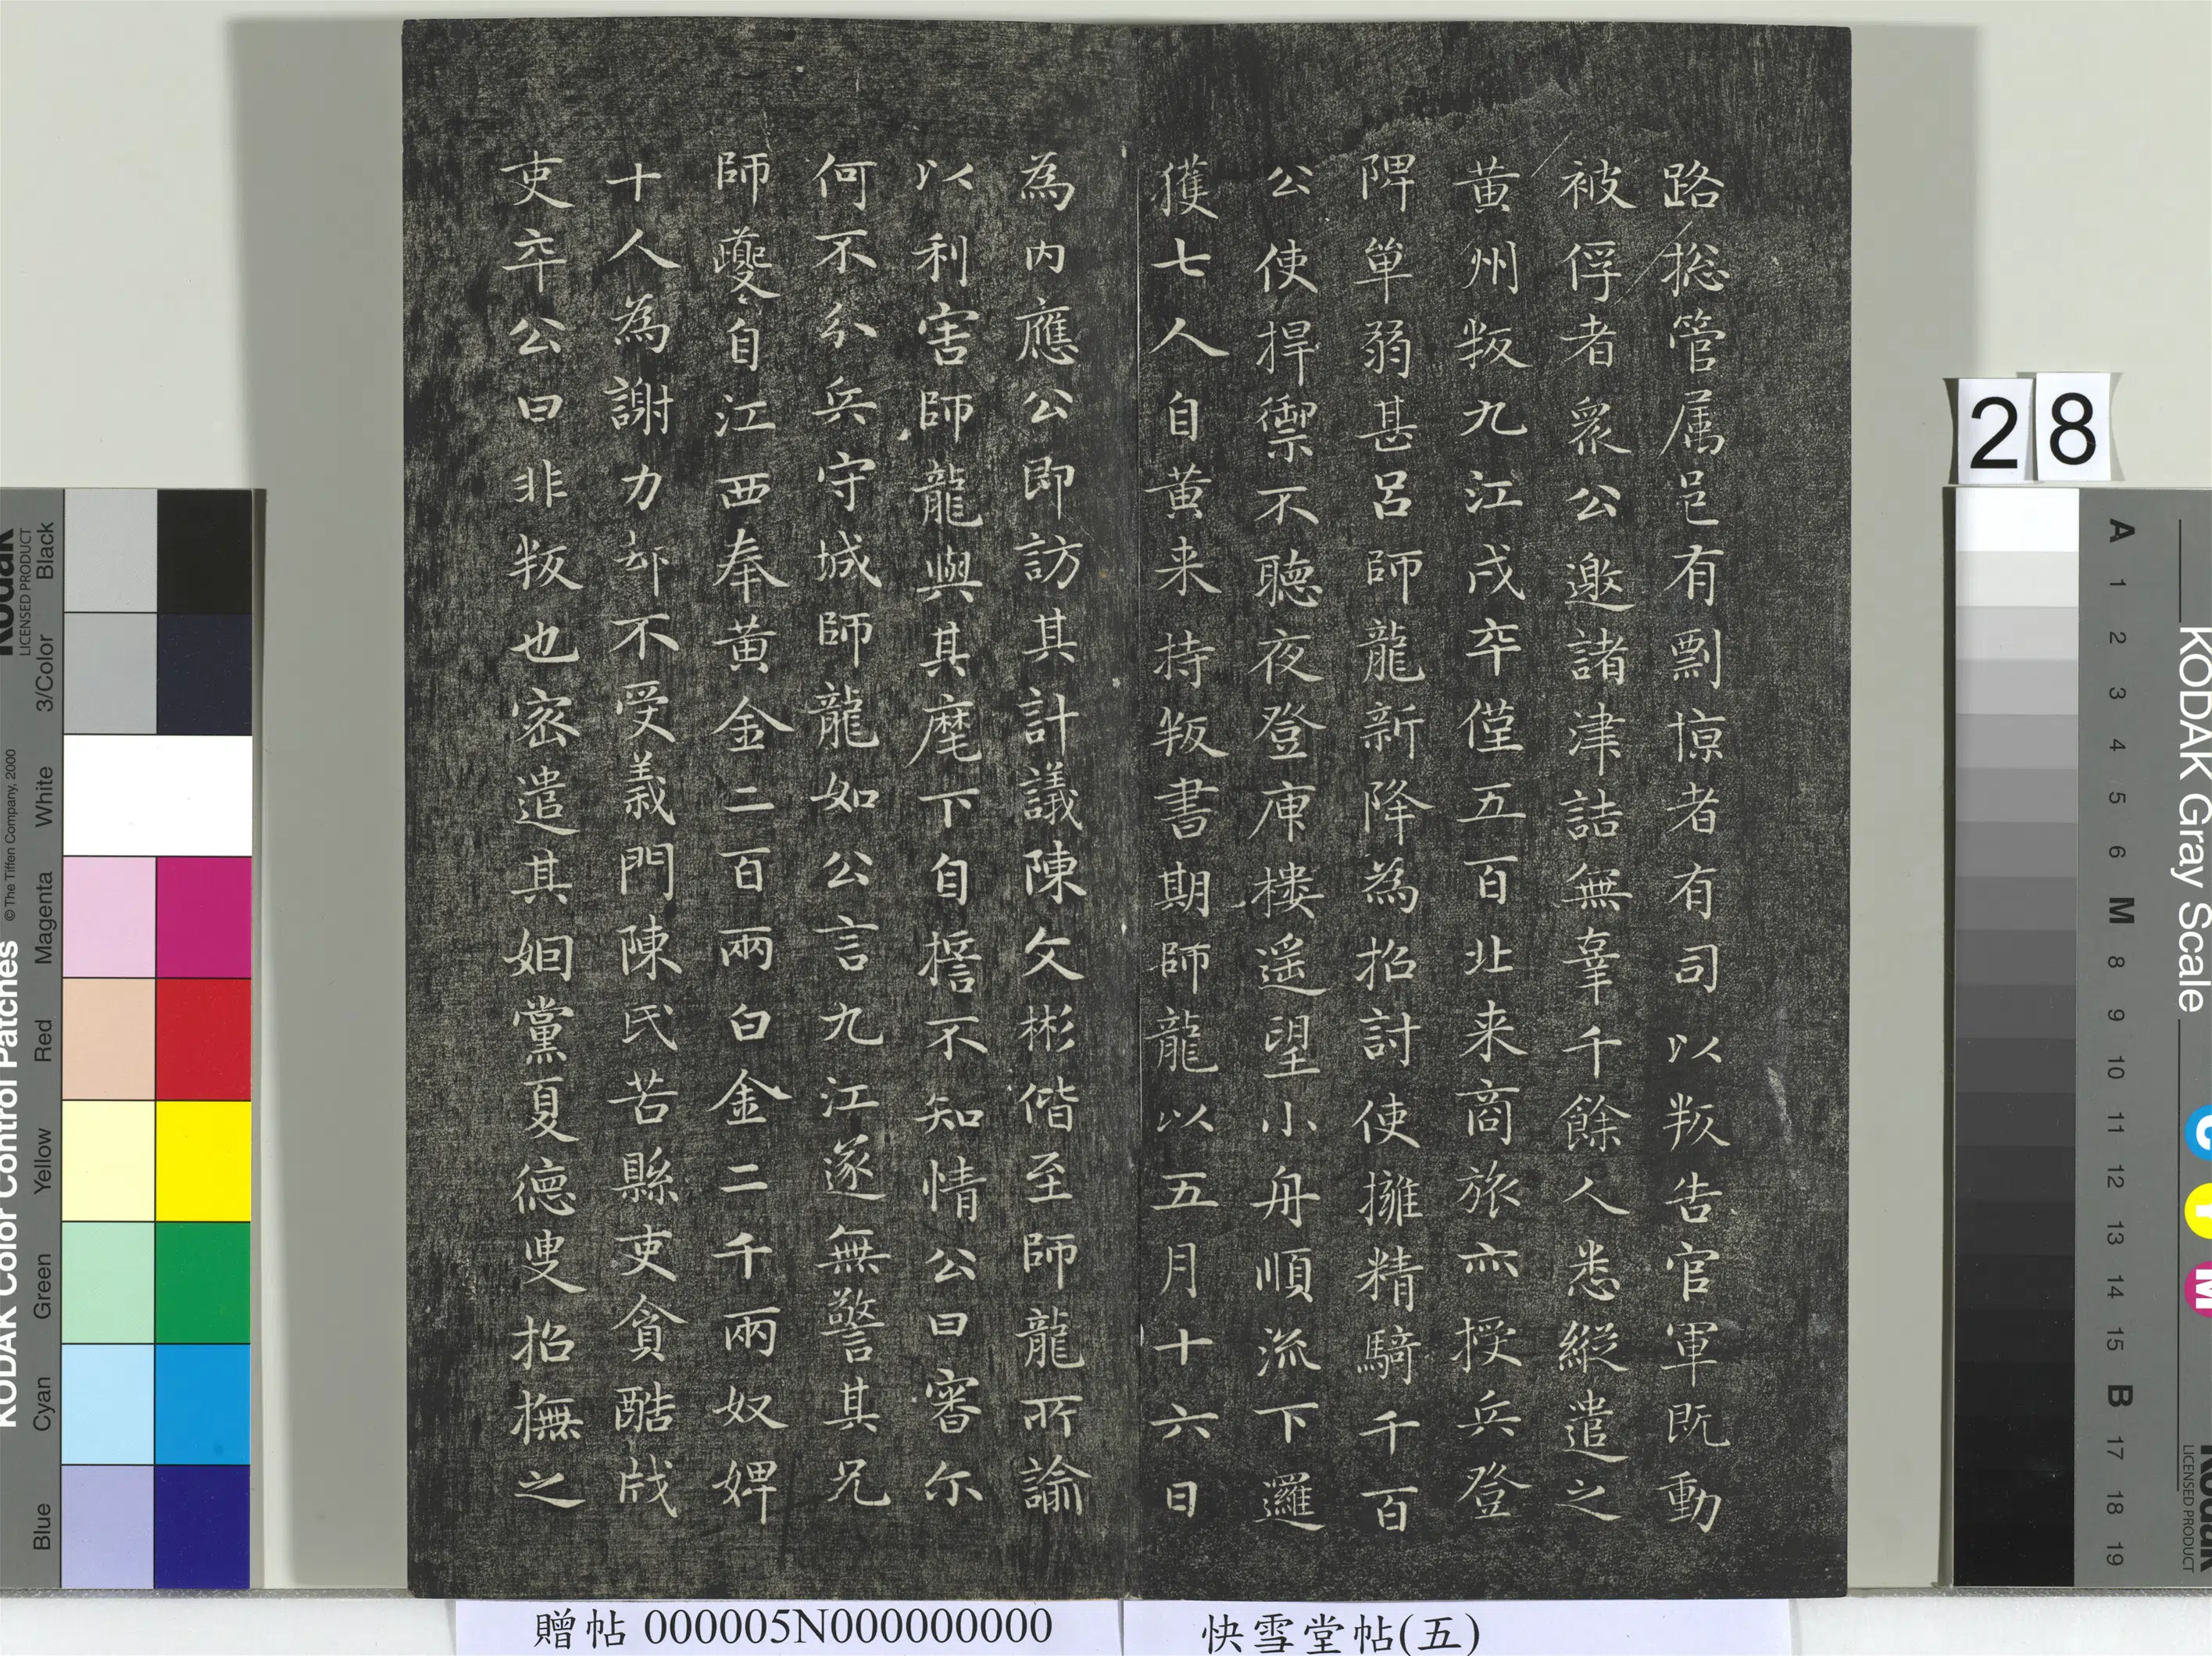 路揔管属邑有剽掠者有司以叛告官軍既動
被俘者衆公邀諸津詰無辜千餘人悉縦遣之
黄州叛九江戍卒僅五百北来商旅亦授兵登
陴単弱甚呂師龍新降為招討使擁精騎千百
公使捍禦不聴夜登庾楼遥望小舟順流下邏
獲七人自黄来持叛書期師龍以五月十六日
為内應公即訪其計議陳文彬偕至師龍所諭
以利害師龍與其麾下自誓不知情公曰審尓
何不分兵守城師龍如公言九江遂無警其兄
師夔自江西奉黄金二百兩白金二千兩奴婢
十人為謝力却不受義門陳氏苦縣吏貪酷戕
吏卒公曰非叛也密遣其姻黨夏德叟招撫之
28
贈帖 000005N000000000
快雪堂帖(五)
KODAK Color Control Patches
©The Tiffen Company, 2000
Kodak
LICENSED PRODUCT
Blue Cyan Green Yellow Red Magenta White 3/Color Black
KODAK Gray Scale
C Y M
Kodak
LICENSED PRODUCT
A 1 2 3 4 5 6 M 8 9 10 11 12 13 14 15 B 17 18 19